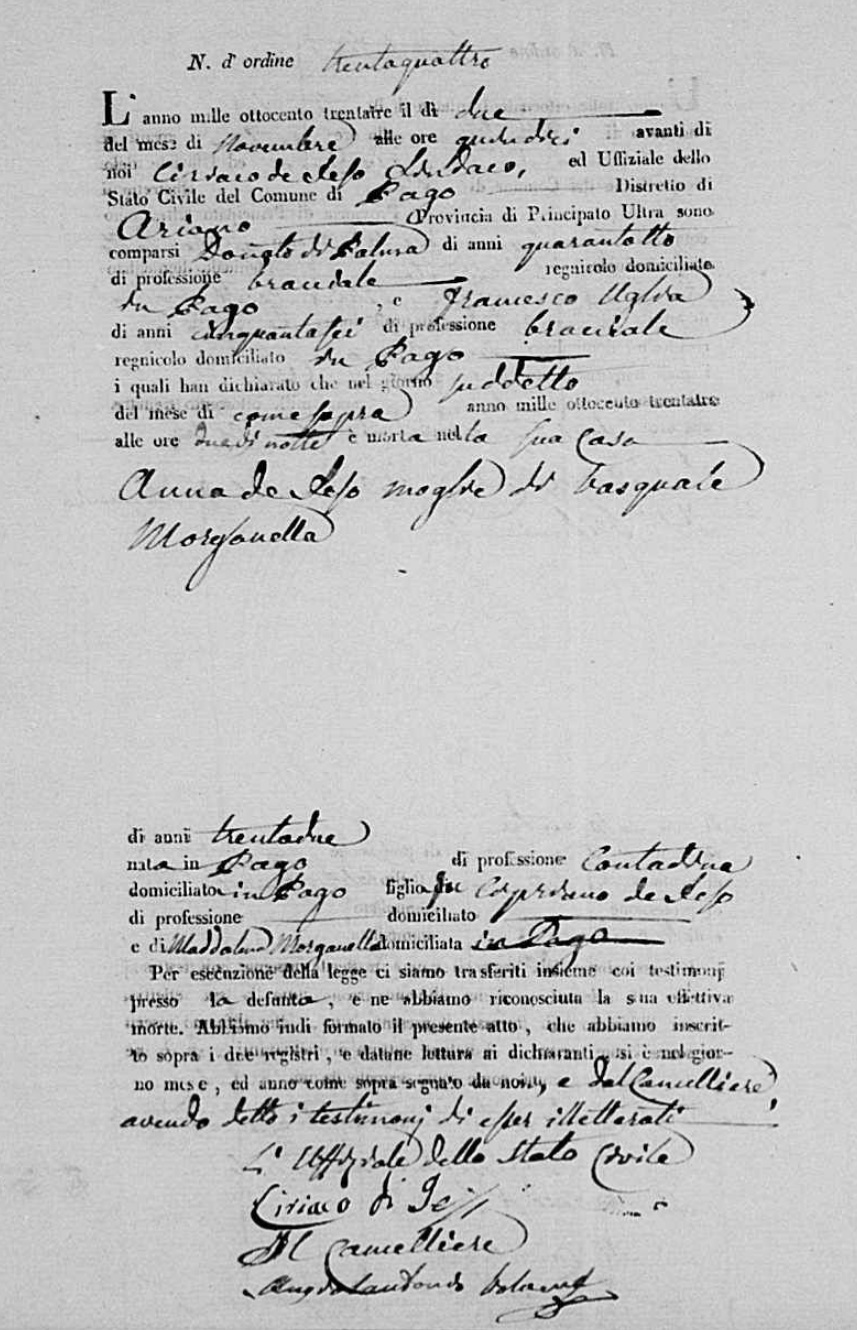 N. d' ordine trentaquattro
L' anno mille ottocento trentatre il di due
del mese di Novembre alle ore quindici avanti di
noi Ciriaco de Jeso Sindaco, ed Uffiziale dello
Stato Civile del Comune di Pago Distretto di
Ariano Provincia di Principato Ultra sono
comparsi Donato di di anni quarantotto
di professione bracciale regnicolo domiciliato
in Pago, e Francesco
di anni cinquantasei di professione bracciale
regnicolo domiciliato in Pago
i quali han dichiarato che nel giorno suddetto
del mese di come sopra anno mille ottocento trentatre
alle ore due di notte è morta nella sua casa
Anna de Jeso moglie di Pasquale
Morganella
di anni trentadue
nata in Pago di professione Contadina
domiciliata in Pago figlia fu Cipriano de Jeso
di professione domiciliato
e di Maddalena Morganella domiciliata in Pago
Per esecuzione della legge ci siamo trasferiti insieme coi testimonj
presso la defunta, e ne abbiamo riconosciuta la sua effettiva
morte. Abbiamo indi formato il presente atto, che abbiamo inscrit-
to sopra i due registri, e datane lettura ai dichiaranti, si è nel gior-
no mese, ed anno come sopra segnato da noi, e dal Cancelliere
avendo detto i testimonj di esser illetterati
L' Uffiziale dello Stato Civile
Ciriaco di Jeso
Il Cancelliere